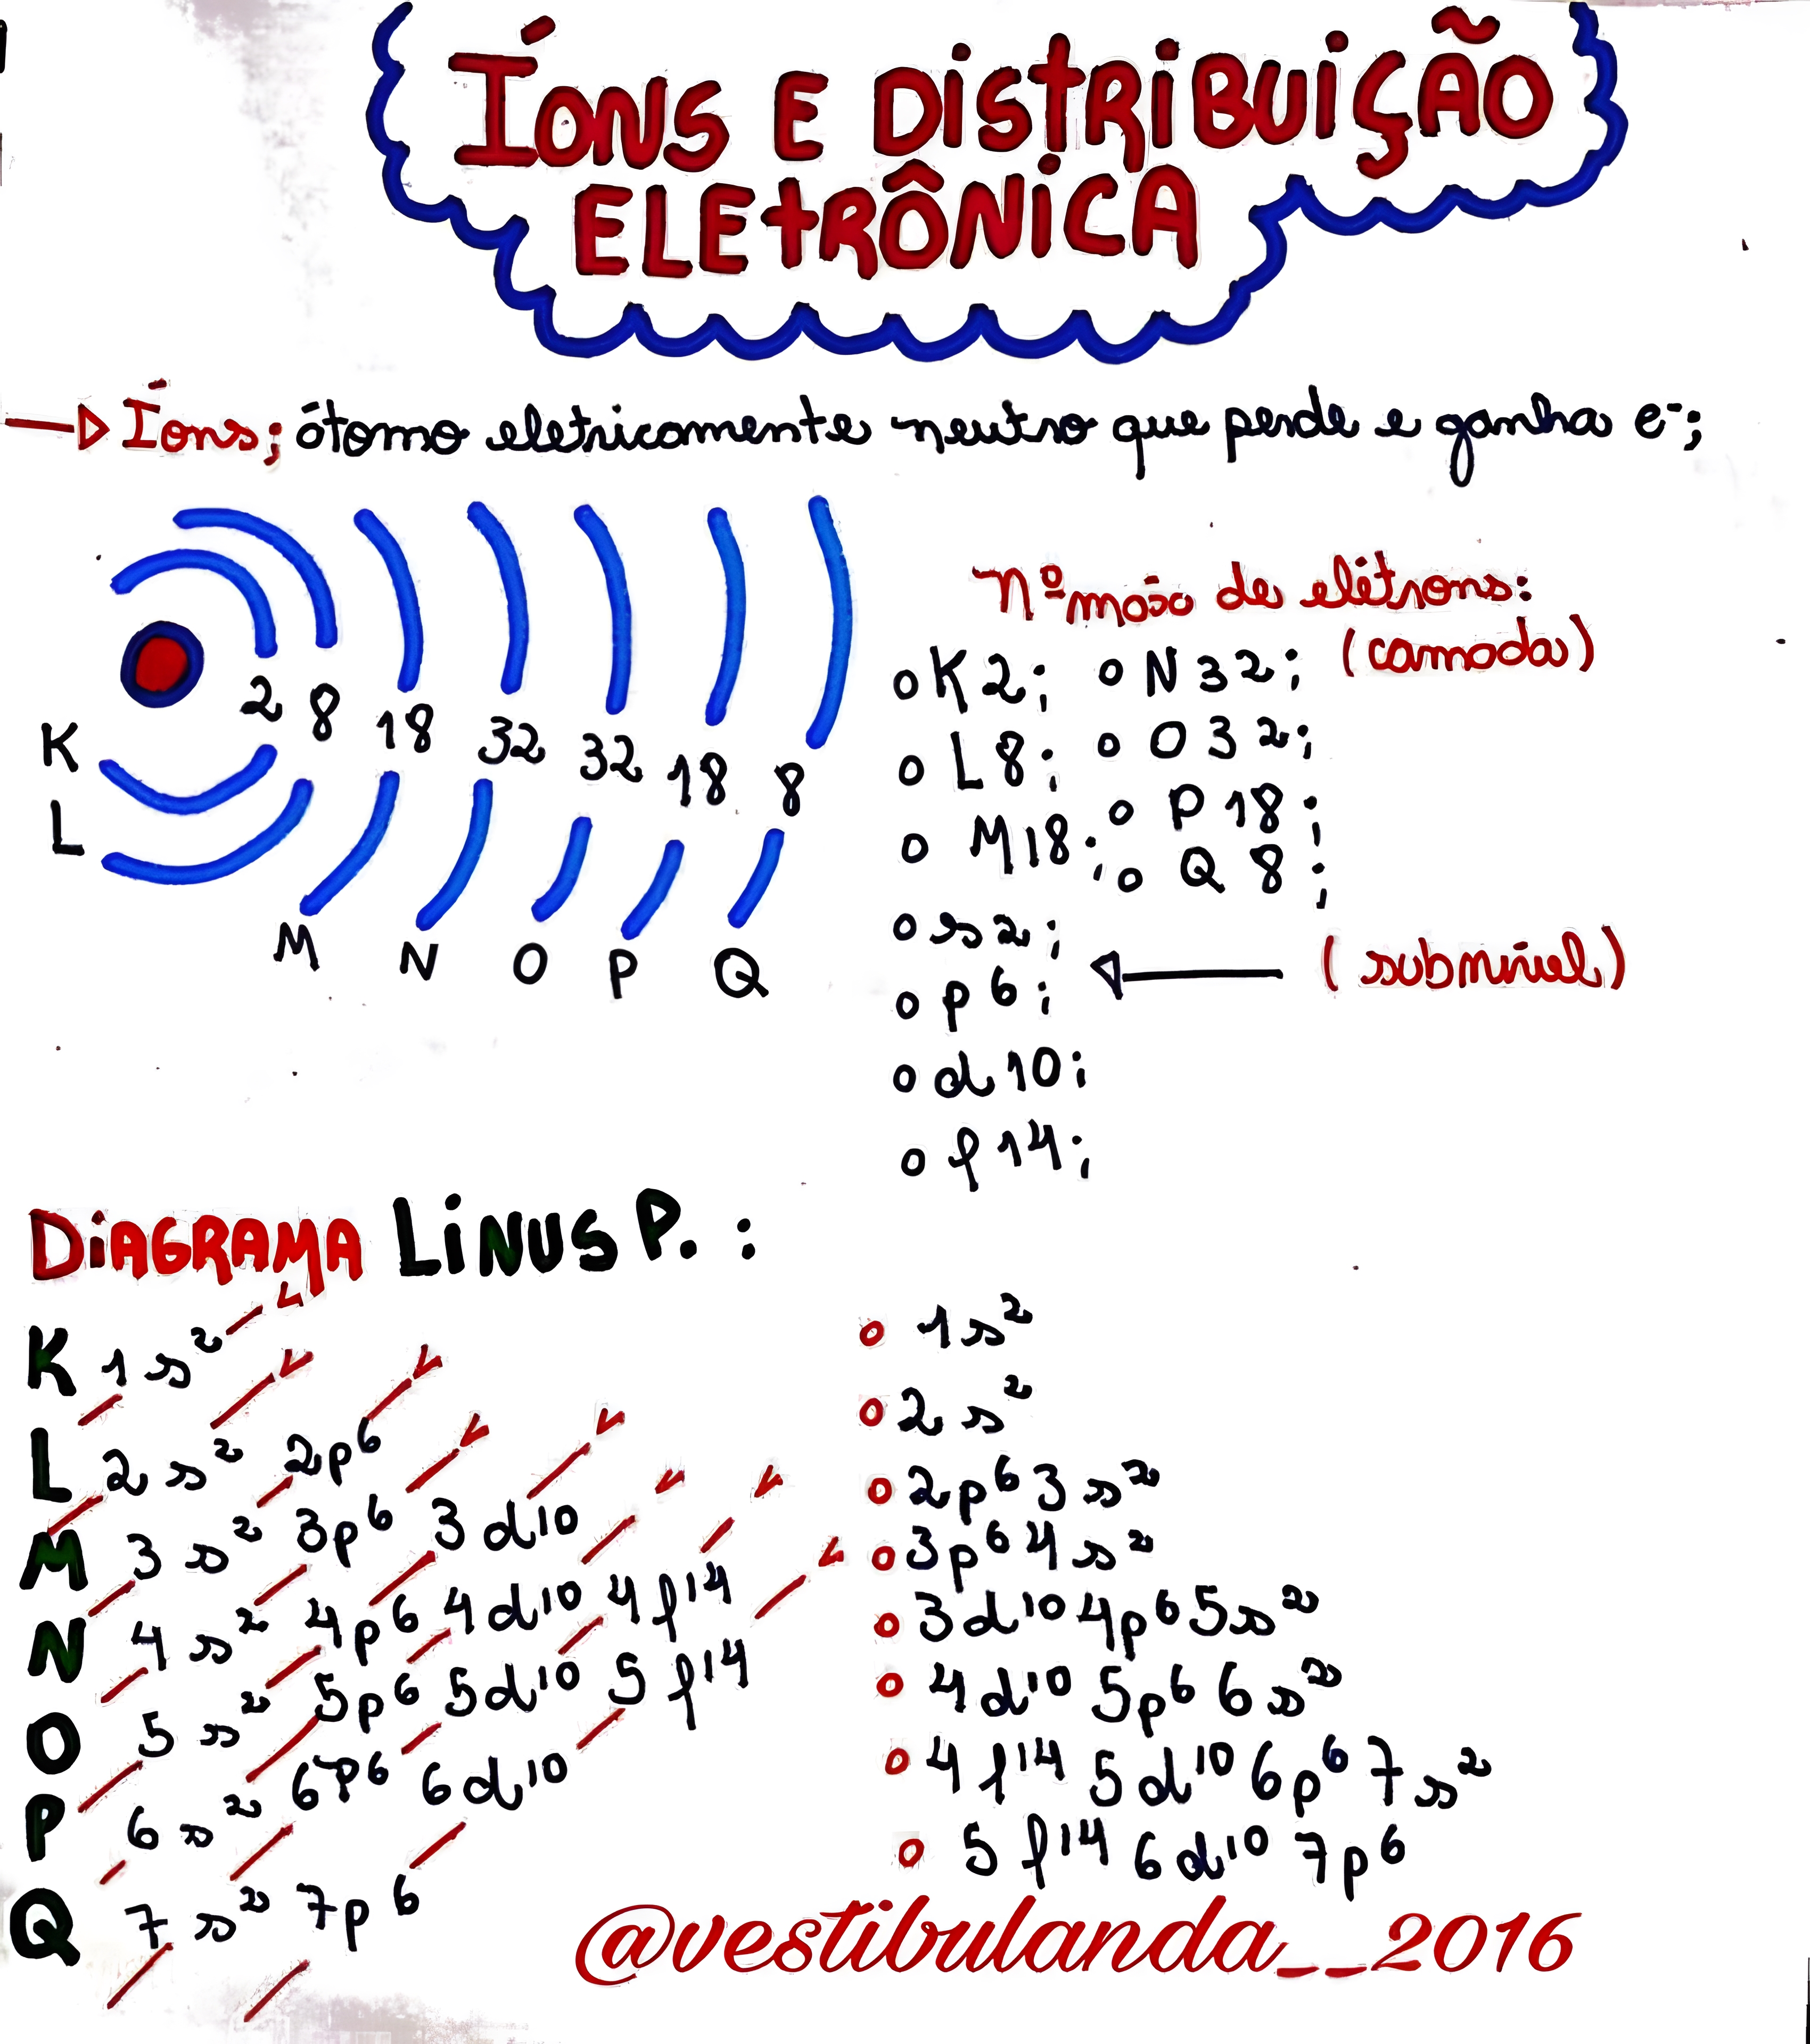 ÍONS E DISTRIBUIÇÃO
ELETRÔNICA
Íons; átomo eletricamente neutro que perde e ganha e⁻;
2 8 18 32 32 18 8
K
L
M N O P Q
nº máxo de elétrons:
(camada)
K2; N32;
L8; O32;
M18; P18;
Q8;
s2;
p6; (subnível)
d10;
f14;
DIAGRAMA LINUS P. :
K 1s²
L 2s² 2p⁶
M 3s² 3p⁶ 3d¹⁰
N 4s² 4p⁶ 4d¹⁰ 4f¹⁴
O 5s² 5p⁶ 5d¹⁰ 5f¹⁴
P 6s² 6p⁶ 6d¹⁰
Q 7s² 7p⁶
1s²
2s²
2p⁶ 3s²
3p⁶ 4s²
3d¹⁰ 4p⁶ 5s²
4d¹⁰ 5p⁶ 6s²
4f¹⁴ 5d¹⁰ 6p⁶ 7s²
5f¹⁴ 6d¹⁰ 7p⁶
@vestibulanda__2016